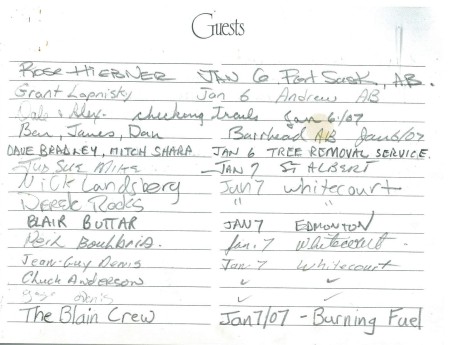 Guests
Rose Hiebner JAN 6 Fort Sask, AB.
Grant Lapnisky Jan 6 Andrew AB
& Alex. checking trails Jan 6/07
Ben, James, Dan Barrhead AB Jan 6/07
DAVE BRADLEY, MITCH SHARA JAN 6 TREE REMOVAL SERVICE.
Sue Mike JAN 7 ST ALBERT
Nick Landsberg Jan 7 Whitecourt
Derek Rooks " "
BLAIR BUTTAR JAN 7 EDMONTON
Jan. 7 Whitecourt.
Jean-Guy Denis Jan 7 Whitecourt
Chuck Anderson ✓ ✓
Denis ✓ ✓
The Blain Crew Jan 7/07 - Burning Fuel